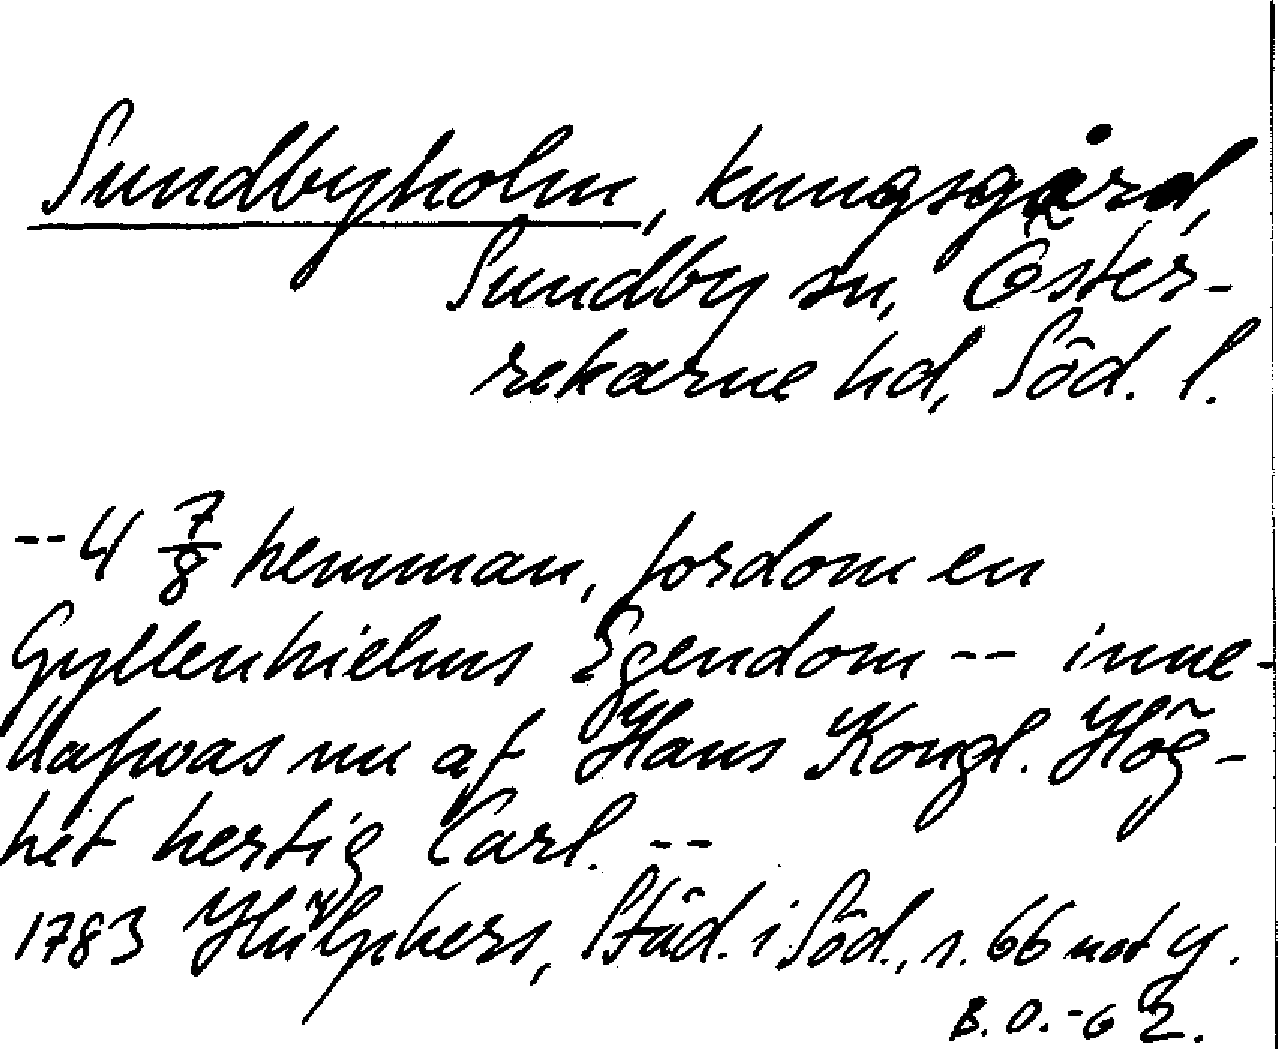 Sundbyholm, kungsgård,
Sundby sn, Öster-
rekarne hd, Söd. l.
-- 4 7/8 hemman, fordom en
Gyllenhielms Egendom -- inne-
hafwas nu af Hans Kongl. Hög-
het hertig Carl. --
1783 Hülphers, Städ. i Söd., s. 66 not y.
B.O. -62.